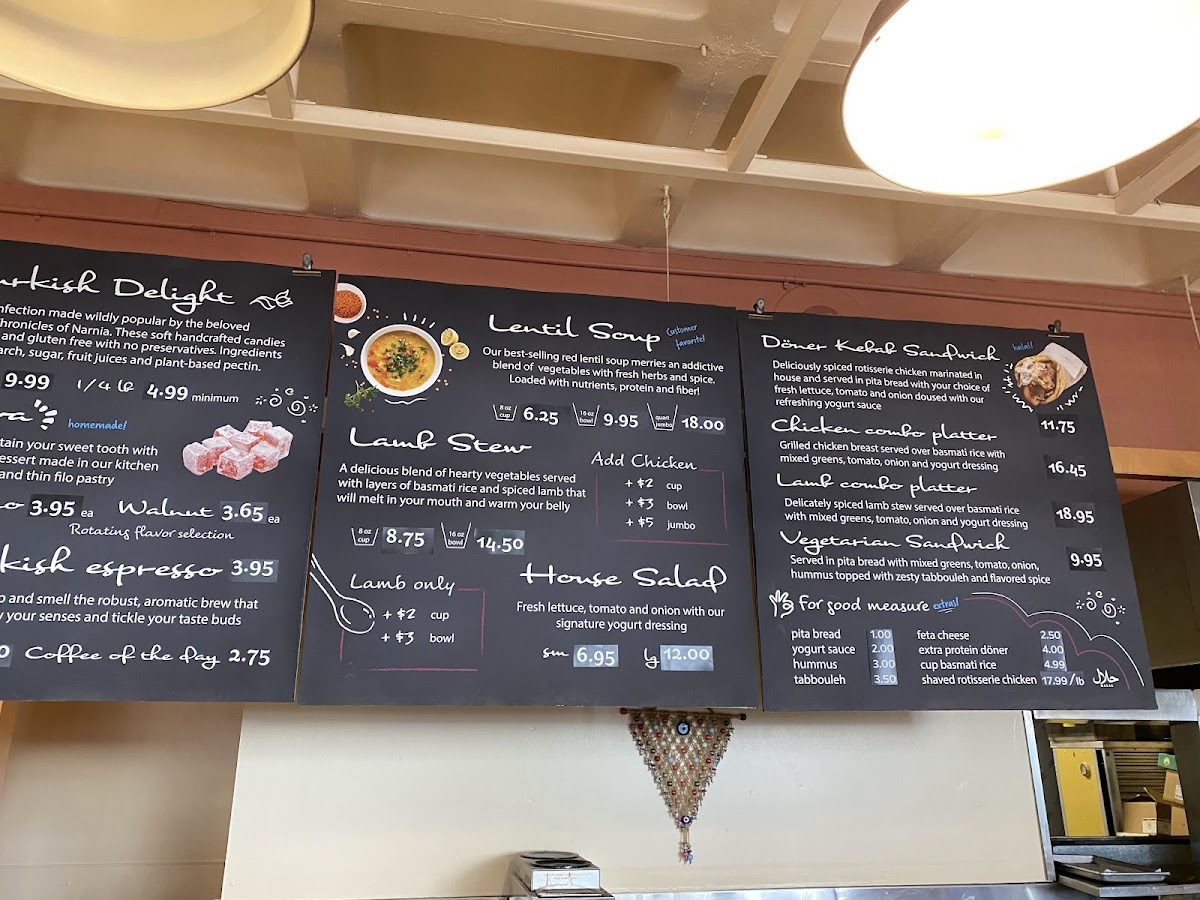 Turkish Delight
nfection made wildly popular by the beloved
hronicles of Narnia. These soft handcrafted candies
and gluten free with no preservatives. Ingredients
arch, sugar, fruit juices and plant-based pectin.
9.99 1/4 lb 4.99 minimum
homemade!
tain your sweet tooth with
essert made in our kitchen
and thin filo pastry
3.95 ea Walnut 3.65 ea
Rotating flavor selection
kish espresso 3.95
p and smell the robust, aromatic brew that
y your senses and tickle your taste buds
Coffee of the day 2.75
Lentil Soup Customer favorite!
Our best-selling red lentil soup merries an addictive
blend of vegetables with fresh herbs and spice.
Loaded with nutrients, protein and fiber!
8 oz cup 6.25 16 oz bowl 9.95 quart jumbo 18.00
Lamb Stew
A delicious blend of hearty vegetables served
with layers of basmati rice and spiced lamb that
will melt in your mouth and warm your belly
8 oz cup 8.75 16 oz bowl 14.50
Add Chicken
+ $2 cup
+ $3 bowl
+ $5 jumbo
Lamb only
+ $2 cup
+ $3 bowl
House Salad
Fresh lettuce, tomato and onion with our
signature yogurt dressing
sm 6.95 lg 12.00
Döner Kebab Sandwich halal!
Deliciously spiced rotisserie chicken marinated in
house and served in pita bread with your choice of
fresh lettuce, tomato and onion doused with our
refreshing yogurt sauce
11.75
Chicken combo platter
Grilled chicken breast served over basmati rice with
mixed greens, tomato, onion and yogurt dressing
16.45
Lamb combo platter
Delicately spiced lamb stew served over basmati rice
with mixed greens, tomato, onion and yogurt dressing
18.95
Vegetarian Sandwich
Served in pita bread with mixed greens, tomato, onion,
hummus topped with zesty tabbouleh and flavored spice
9.95
For good measure extras!
pita bread 1.00
yogurt sauce 2.00
hummus 3.00
tabbouleh 3.50
feta cheese 2.50
extra protein döner 4.00
cup basmati rice 4.99
shaved rotisserie chicken 17.99/lb
حلال
HALAL